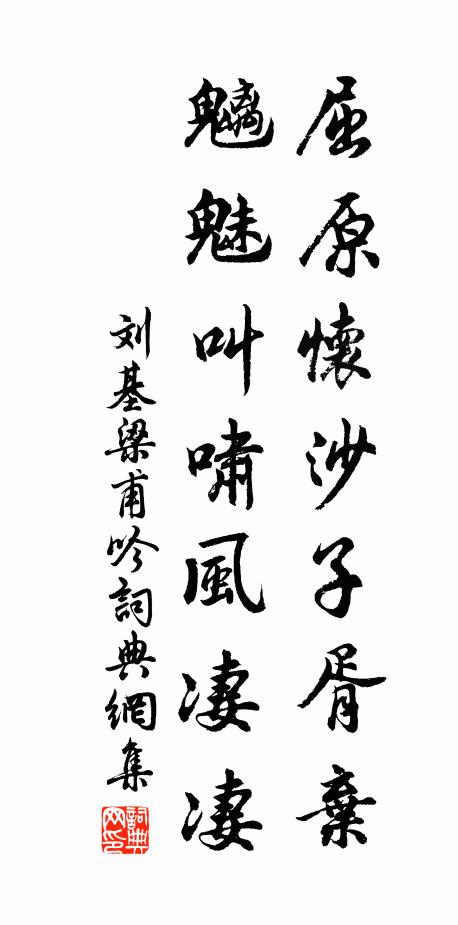 屈原懷沙子胥棄
魑魅叫嘯風凄凄
刘基梁甫吟詞典網集
詞典網印